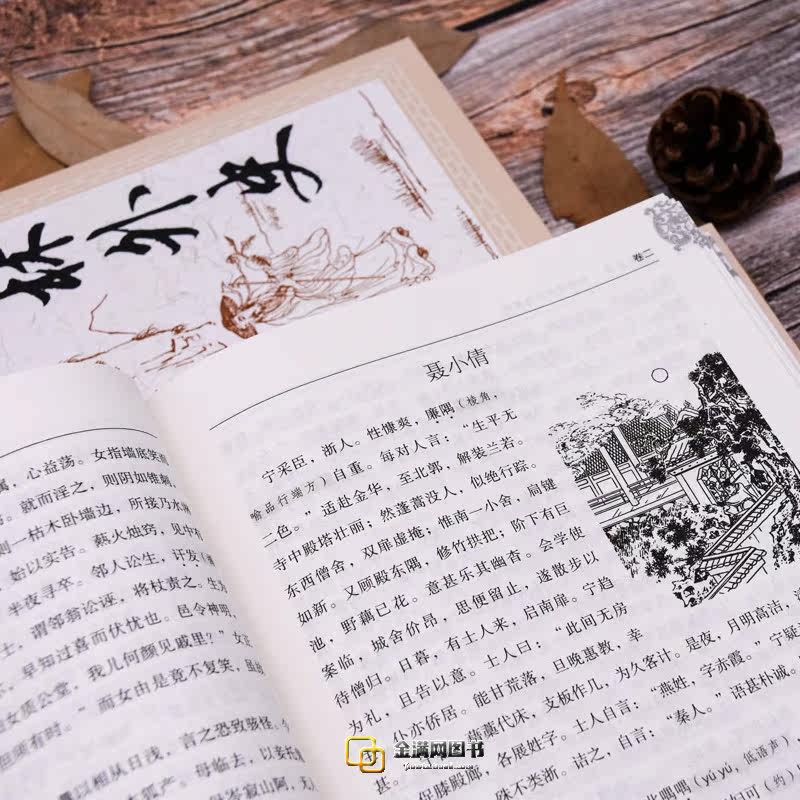 林外史
卷二
，心益荡。女指墙底笑而
。就而淫之，则阴如锥刺
则一枯木卧墙边，所接乃水
，始以实告。爇火烛窍，见中
半夜寻卒。邻人讼生，讦发
士，谓邻翁讼诬，将杖责之。生
，早知过喜而伏忧也。邑令神明，
女质公堂，我儿何颜见戚里？”女正
但须有时。”而女由是竟不复笑，虽
，言之恐致骇怪。今
以相从日浅
狐产。母临去，以
岑寂山阿，无
聂小倩
宁采臣，浙人。性慷爽，廉隅（棱角，
喻品行端方）自重。每对人言：“生平无
二色。”适赴金华，至北郭，解装兰若。
寺中殿塔壮丽；然蓬蒿没人，似绝行踪。
东西僧舍，双扉虚掩；惟南一小舍，扃键
如新。又顾殿东隅，修竹拱把；阶下有巨
池，野藕已花。意甚乐其幽杳。会学使
案临，城舍价昂，思便留止，遂散步以
待僧归。日暮，有士人来，启南扉。宁趋
为礼，且告以意。士人曰：“此间无房
，仆亦侨居。能甘荒落，旦晚惠教，幸
甚。”藁代床，支板作几，为久客计。是夜，月明高洁，
促膝殿廊，各展姓字。士人自言：“燕姓，字赤霞。”宁疑
殊不类浙。诘之，自言：“秦人。”语甚朴诚。
喁喁（yú yú，低语声）
可（约）
金满网图书